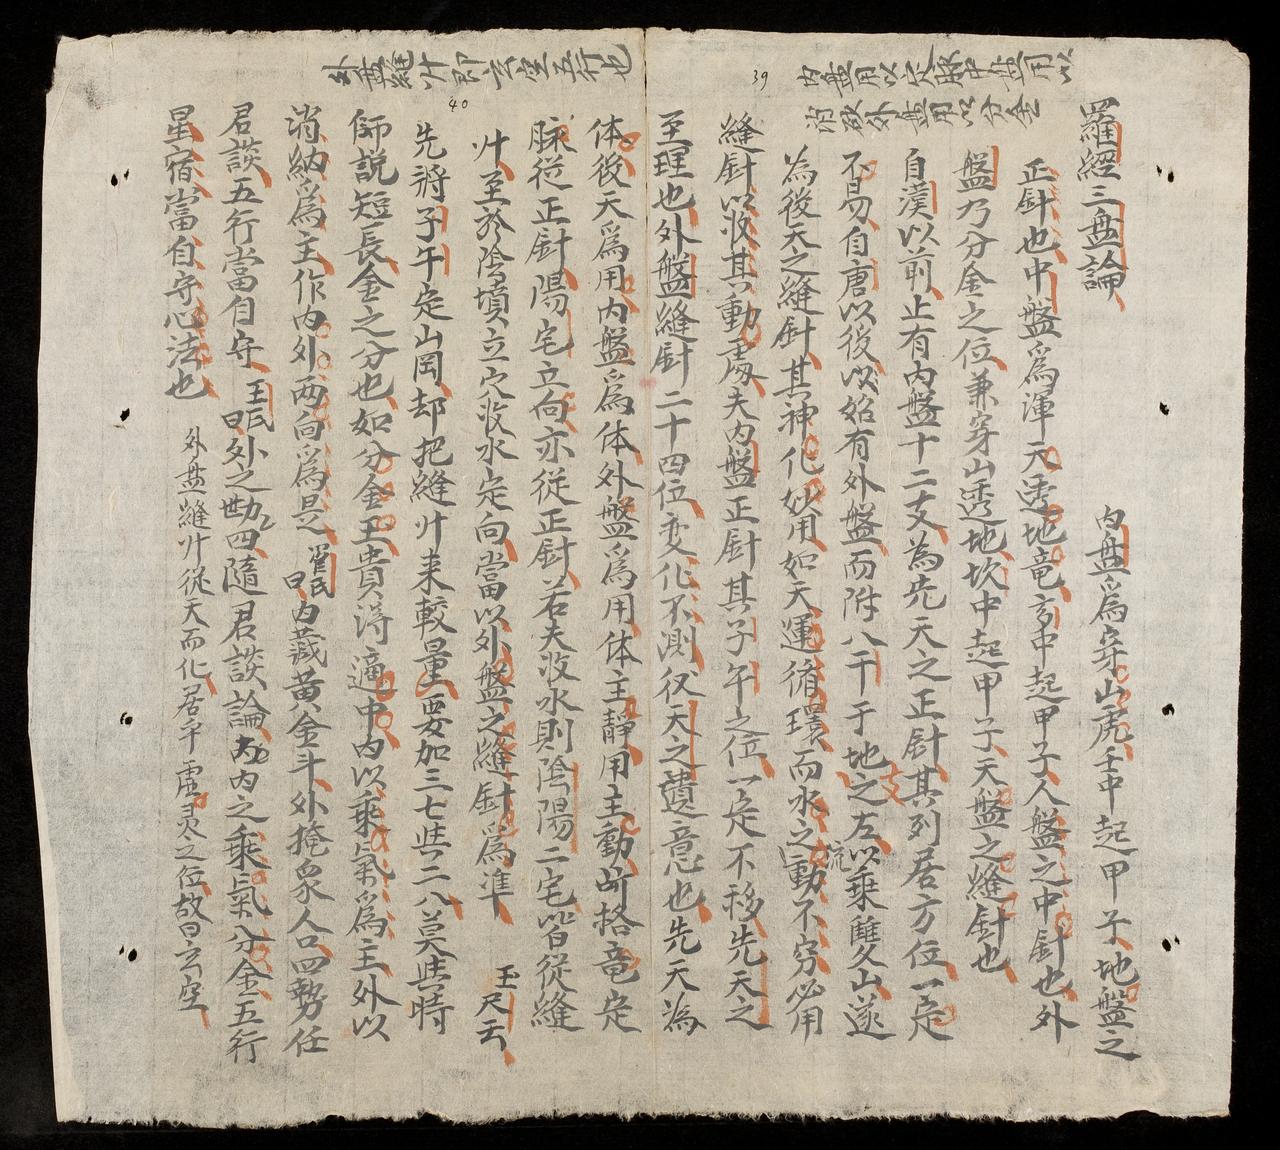 羅經三盤論
内盤爲穿山虎壬中起甲子地盤之
正針也中盤爲渾天透地竜亥中起甲子人盤之中針也外
盤乃分金之位兼穿山透地坎中起甲子天盤之縫針也
自漢以前止有内盤十二支為先天之正針其列居方位一定
不易自唐以後以始有外盤而附八干于地支之左以乘雙山遂
為後天之縫針其神化妙用如天運循環而水之流動不穷必用
縫針以收其動處夫内盤正針其子午之位一定不移先天之
至理也外盤縫針二十四位变化不測後天之遺意也先天為
体後天爲用内盤爲体外盤爲用体主靜用主動所格竜定
脉從正針陽宅立向亦從正針若夫收水則陰陽二宅皆從縫
针至於陰墳立穴收水定向當以外盤之縫針爲準 玉尺云
先將子午定山岡却把縫针来較量要加三七與二八莫與時
師説短長金之分也如分金王貴淂適中内以乘氣爲主外以
消納爲主作内外两向爲是 管氏曰 内藏黄金斗外掩众人口四勢任
君談五行當自守 王氏曰 外之四勢隨君談論内之乘氣分金五行
星宿當自守心法也
外盘縫针從天而化居乎虚灵之位故曰玄空
内盘用以定脉中盘用以
消砂外盘用以分金
39
外盘縫针即玄空五行也
40